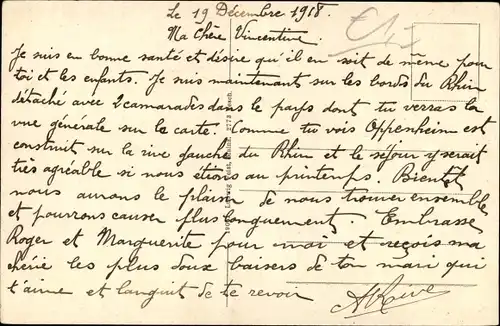 Le 19 Décembre 1918.
Ma Chère Vincentine.
Je suis en bonne santé et désire qu'il en soit de même pour
toi et les enfants. Je suis maintenant sur les bords du Rhin
détaché avec 2 camarades dans le pays dont tu verras la
vue générale sur la carte. Comme tu vois Oppenheim est
construit sur la rive gauche du Rhin et le séjour y serait
très agréable si nous étions au printemps. Bientôt
nous aurons le plaisir de nous trouver ensemble
et pourrons causer plus longuement. Embrasse
Roger et Marguerite pour moi et reçois ma
chérie les plus doux baisers de ton mari qui
t'aime et languit de te revoir